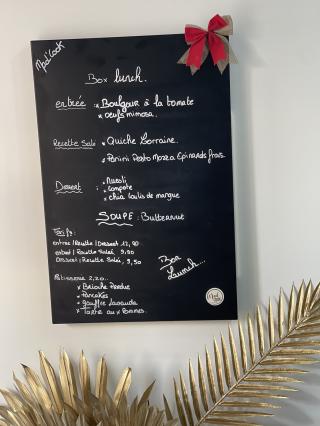 Mod'Cook
Box lunch.
entrée : * Boulgour à la tomate
* oeufs mimosa.
Recette Salé * Quiche Lorraine.
* Panini Pesto Mozza Epinards frais.
Dessert : * Muesli
* compote
* chia coulis de mangue
SOUPE : Butternut
Tarifs :
entrée / Recette / Dessert 12,90
entrée / Recette Salé 9,90
Dessert / Recette Salé , 9,50
Bon
Lunch...
Patisserie 2,20..
* Brioche Perdue
* Pancakes
* Gauffre
* Tarte aux Pommes.